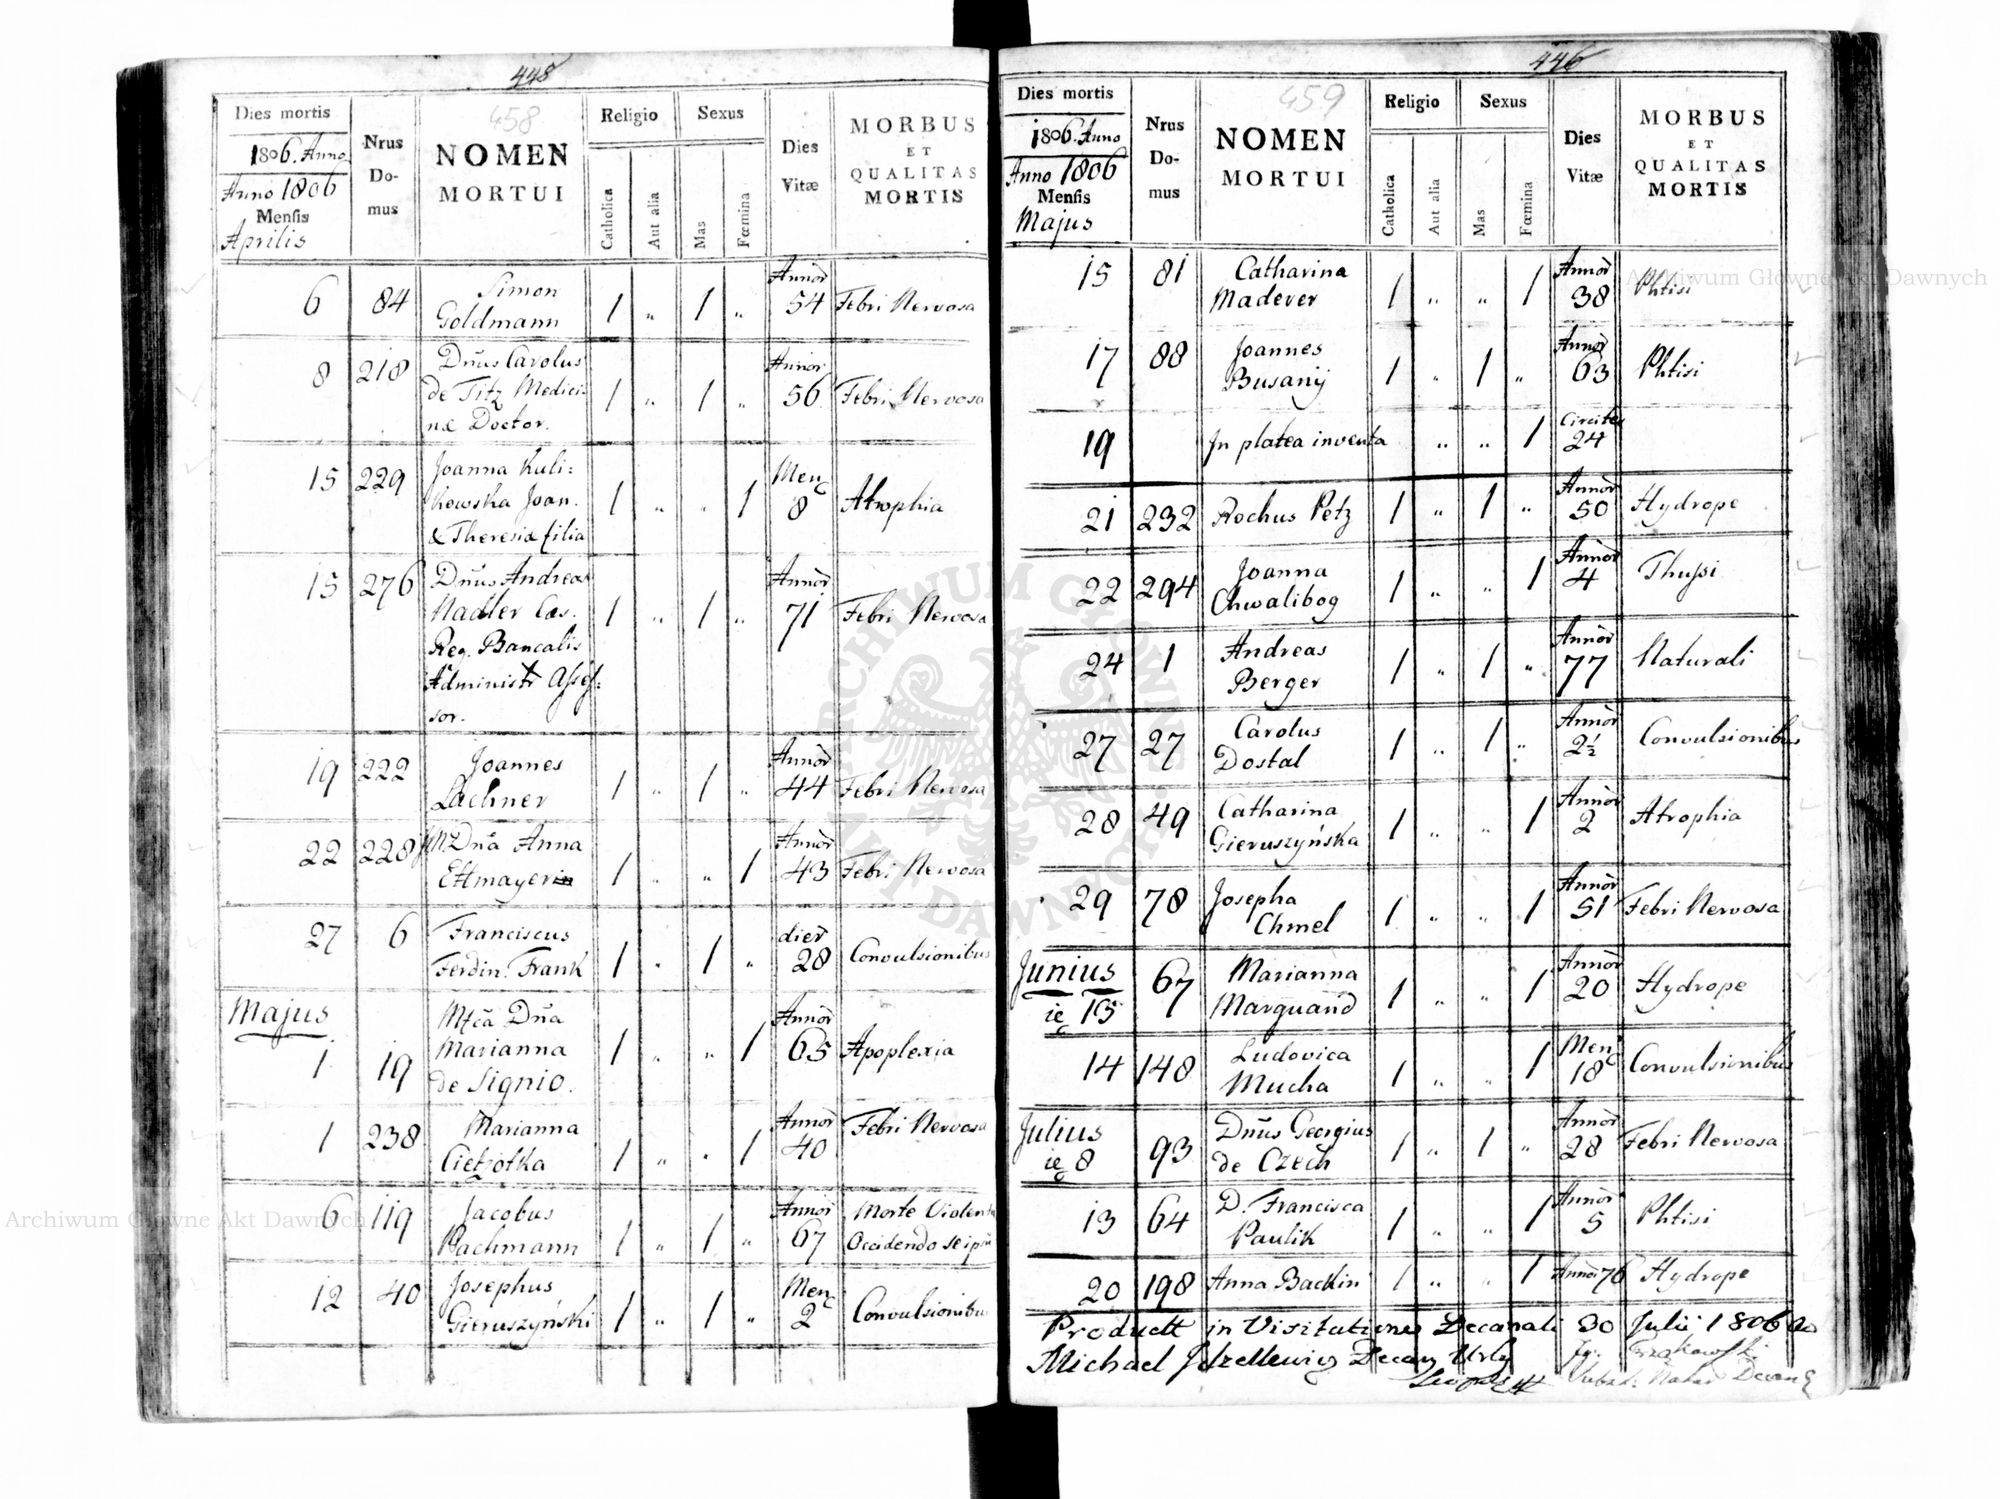 448
458
Dies mortis
1806. Anno
Anno 1806
Mensis
Aprilis
Nrus
Do-
mus
NOMEN
MORTUI
Religio
Catholica
Aut alia
Sexus
Mas
Fœmina
Dies
Vitæ
MORBUS
ET
QUALITAS
MORTIS
6 84 Simon Goldmann 1 " 1 " Annor 54 Febri Nervosa
8 218 Dnus Carolus
de Titz Medici-
næ Doctor. 1 " 1 " Annor 56 Febri Nervosa
15 229 Joanna Kuli:
kowska Joan.
& Theresiæ filia 1 " " 1 Men 8 Atrophia
15 276 Dnus Andreas
Nadler Cæs.
Reg. Bancalis
Administr Asses:
sor. 1 " 1 " Annor 71 Febri Nervosa
19 222 Joannes
Lachner 1 " 1 " Annor 44 Febri Nervosa
22 228 Dna Anna
Ettmayer 1 " " 1 Annor 43 Febri Nervosa
27 6 Franciscus
Ferdin. Frank 1 " 1 " dier 28 Convulsionibus
Majus
1 19 Mfca Dna
Marianna
de Signio. 1 " " 1 Annor 65 Apoplexia
1 238 Marianna
Cietzotka 1 " " 1 Annor 40 Febri Nervosa
6 119 Jacobus
Pachmann 1 " 1 " Annor 67 Morte Violenta
Occidendo se ipsu
12 40 Josephus
Gieruszyński 1 " 1 " Men 2 Convulsionibu
446
459
Dies mortis
1806. Anno
Anno 1806
Mensis
Majus
Nrus
Do-
mus
NOMEN
MORTUI
Religio
Catholica
Aut alia
Sexus
Mas
Fœmina
Dies
Vitæ
MORBUS
ET
QUALITAS
MORTIS
15 81 Catharina
Maderer 1 " " 1 Annor 38 Phtisi
17 88 Joannes
Busanÿ 1 " 1 " Annor 63 Phtisi
19 In platea inventa " " 1 Circiter 24
21 232 Rochus Petz 1 " 1 " Annor 50 Hydrope
22 294 Joanna
Chwalibog 1 " " 1 Annor 4 Thussi
24 1 Andreas
Berger 1 " 1 " Annor 77 Naturali
27 27 Carolus
Dostal 1 " 1 " Annor 2½ Convulsionibus
28 49 Catharina
Gieruszyńska 1 " " 1 Annor 2 Atrophia
29 78 Josepha
Chmel 1 " " 1 Annor 51 Febri Nervosa
Junius
ie 13 67 Marianna
Marquand 1 " " 1 Annor 20 Hydrope
14 148 Ludovica
Mucha 1 " " 1 Men 18 Convulsionibus
Julius
ie 8 93 Dnus Georgius
de Czech 1 " 1 " Annor 28 Febri Nervosa
13 64 D. Francisca
Paulik 1 " " 1 Annor 5 Phtisi
20 198 Anna Backin 1 " " 1 Annor 76 Hydrope
Product in Visitatione Decanali 30 Julii 1806
Michael Decan
Archiwum Główne Akt Dawnych
Archiwum Główne Akt Dawnych
ARCHIWUM GŁÓWNE AKT DAWNYCH